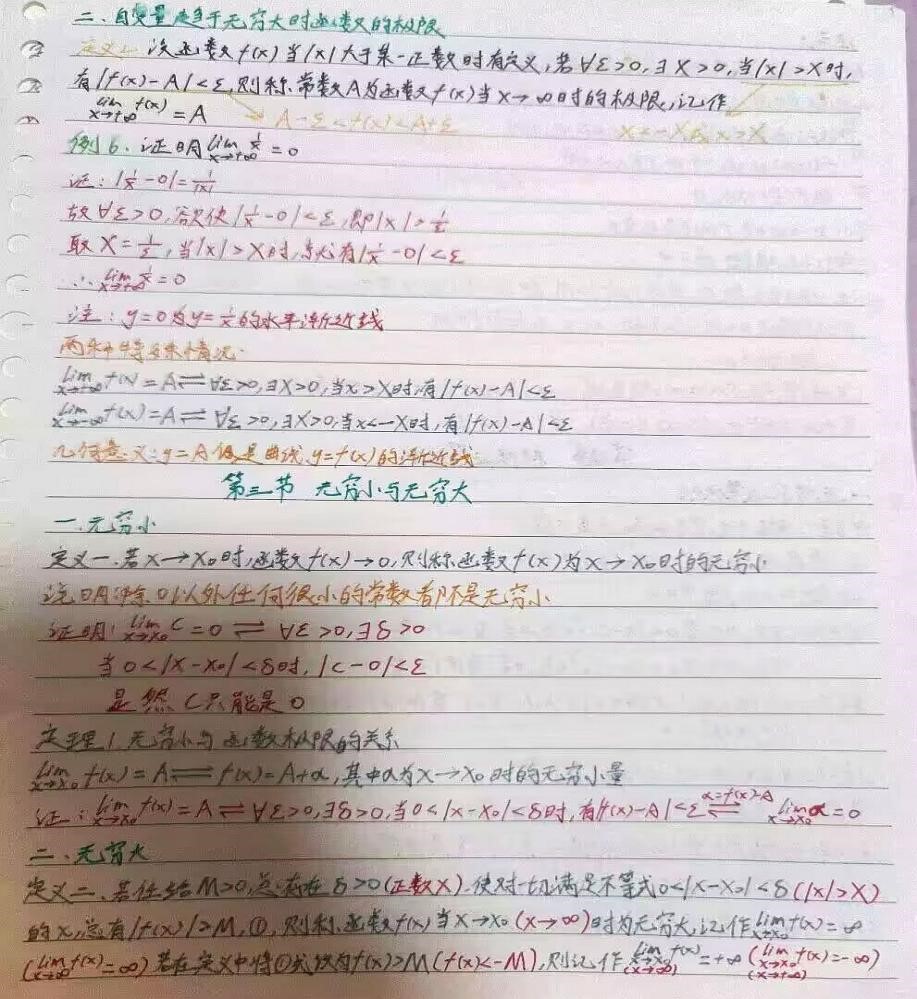 二、自变量趋于无穷大时函数的极限
定义二 设函数f(x)当|x|大于某一正数时有定义,若∀ε>0,∃X>0,当|x|>X时,
有|f(x)-A|<ε,则称常数A为函数f(x)当x→∞时的极限,记作
lim x→∞ f(x)=A A-ε<f(x)<A+ε x<-X或x>X
例6、证明 lim x→∞ 1/x =0
证:|1/x-0|=1/|x|
故∀ε>0,欲使|1/x-0|<ε,即|x|>1/ε
取X=1/ε,当|x|>X时,就有|1/x-0|<ε
∴ lim x→∞ 1/x=0
注:y=0为y=1/x的水平渐近线
两种特殊情况:
lim x→+∞ f(x)=A⇌∀ε>0,∃X>0,当x>X时,有|f(x)-A|<ε
lim x→-∞ f(x)=A⇌∀ε>0,∃X>0,当x<-X时,有|f(x)-A|<ε
几何意义:y=A仍是曲线y=f(x)的渐近线
第三节 无穷小与无穷大
一、无穷小
定义一、若x→x₀时,函数f(x)→0,则称函数f(x)为x→x₀时的无穷小
说明 除0以外任何很小的常数都不是无穷小
证明:lim x→x₀ C=0⇌∀ε>0,∃δ>0
当0<|x-x₀|<δ时,|C-0|<ε
显然C只能是0
定理1.无穷小与函数极限的关系
lim x→x₀ f(x)=A⇌f(x)=A+α,其中α为x→x₀时的无穷小量
证:lim x→x₀ f(x)=A⇌∀ε>0,∃δ>0,当0<|x-x₀|<δ时,有|f(x)-A|<ε ⇌ α=f(x)-A lim x→x₀ α=0
二、无穷大
定义二、若任给M>0,总存在δ>0(正数X),使对一切满足不等式0<|x-x₀|<δ(|x|>X)
的x,总有|f(x)|>M,①,则称函数f(x)当x→x₀(x→∞)时为无穷大,记作lim x→x₀ f(x)=∞
(lim x→∞ f(x)=∞)若在定义中将①式改为f(x)>M(f(x)<-M),则记作lim x→x₀ (x→∞) f(x)=+∞(lim x→x₀ (x→∞) f(x)=-∞)